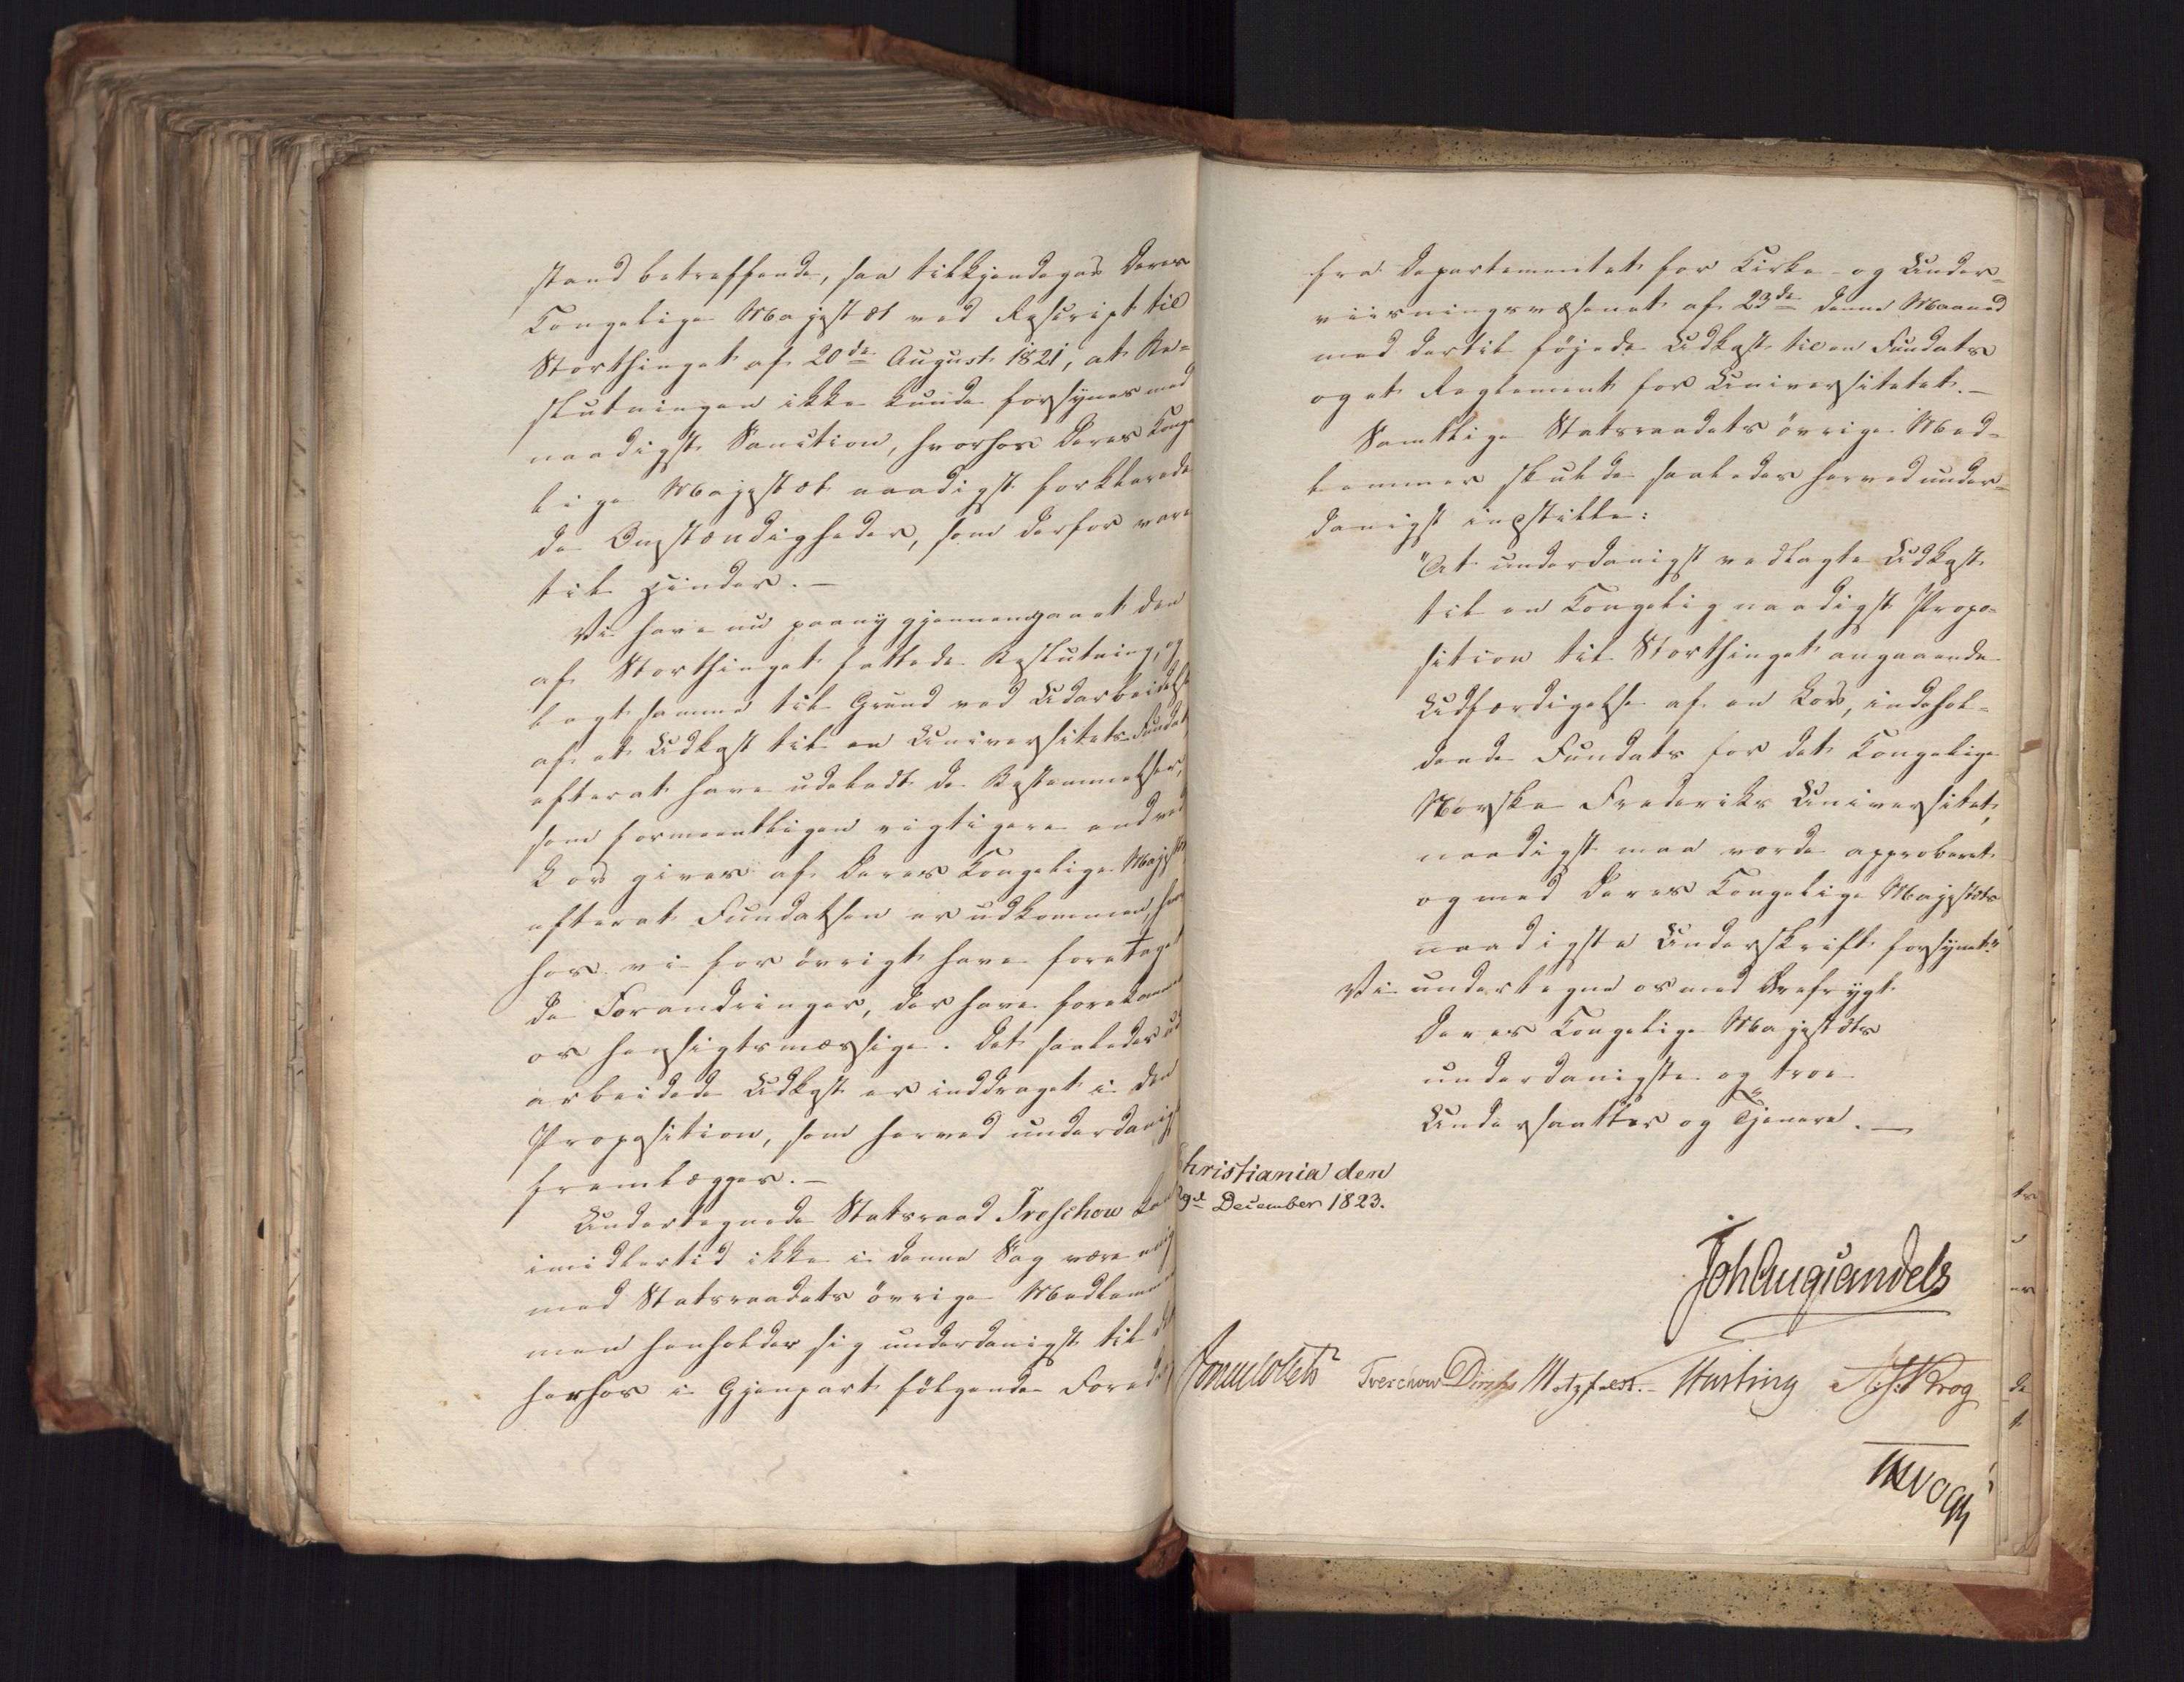 stand betreffende, saa tilkjendegav Deres
Kongelige Majestæt ved Rescript til
Storthinget af 20de August 1821, at Be-
slutningen ikke kunde forsynes med
naadigst Sanction, hvorhos Deres Konge
lige Majestæt naadigst forklarede
de Omstændigheder, som derfor vare
til Hinder. –
Vi have nu paany gjennemgaaet den
af Storthinget fattede Beslutning, og
lagt samme til Grund ved Udarbeidelse
af et Udkast til en Universitets-Fundats
efterat have udeladt de Bestemmelser,
som formeentligen rigtigere end ved
Lov gives af Deres Kongelige Majestæt
efterat Fundatsen er udkommen, hvor
hos vi for övrigt have foretaget
de Forandringer, der have forekommet
os hensigtsmæssige. Det saaledes ud
arbeidede Udkast er inddraget i den
Proposition, som herved underdanigst
fremlægges. –
Undertegnede Statsraad Treschow kan
imidlertid ikke i denne Sag være enig
med Statsraadets övrige Medlemmer
men henholder sig underdanigst til det
herhos i Gjenpart fölgende Foredrag
fra Departementet for Kirke- og Under-
viisningsvæsenet af 23de denne Maaned
med dertil föjede Udkast til en Fundats
og et Reglement for Universitetet. –
Samtlige Statsraadets övrige Med-
lemmer skulde saaledes herved under-
danigst indstille:
"At underdanigst vedlagte Udkast
til en Kongelig naadigst Propo-
sition til Storthinget angaaende
Udfærdigelse af en Lov, indehol-
dende Fundats for det Kongelige
Norske Frederiks Universitet,
naadigst maa vorde approberet
og med Deres Kongelige Majestæts
naadigste Underskrift forsynet."
Vi undertegne os med Ærefrygt
Deres Kongelige Majestæts
underdanigste og troe
Undersaatter og Tjenere. –
Christiania den
29d December 1823.
Joh Aug Sandels
Jonas Collett Treschow Diriks Motzfeldt. – Hasting A. H. Krog
JHVogt